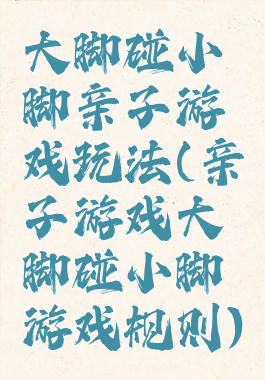 大脚碰小
脚亲子游
戏玩法(亲
子游戏大
脚碰小脚
游戏规则)